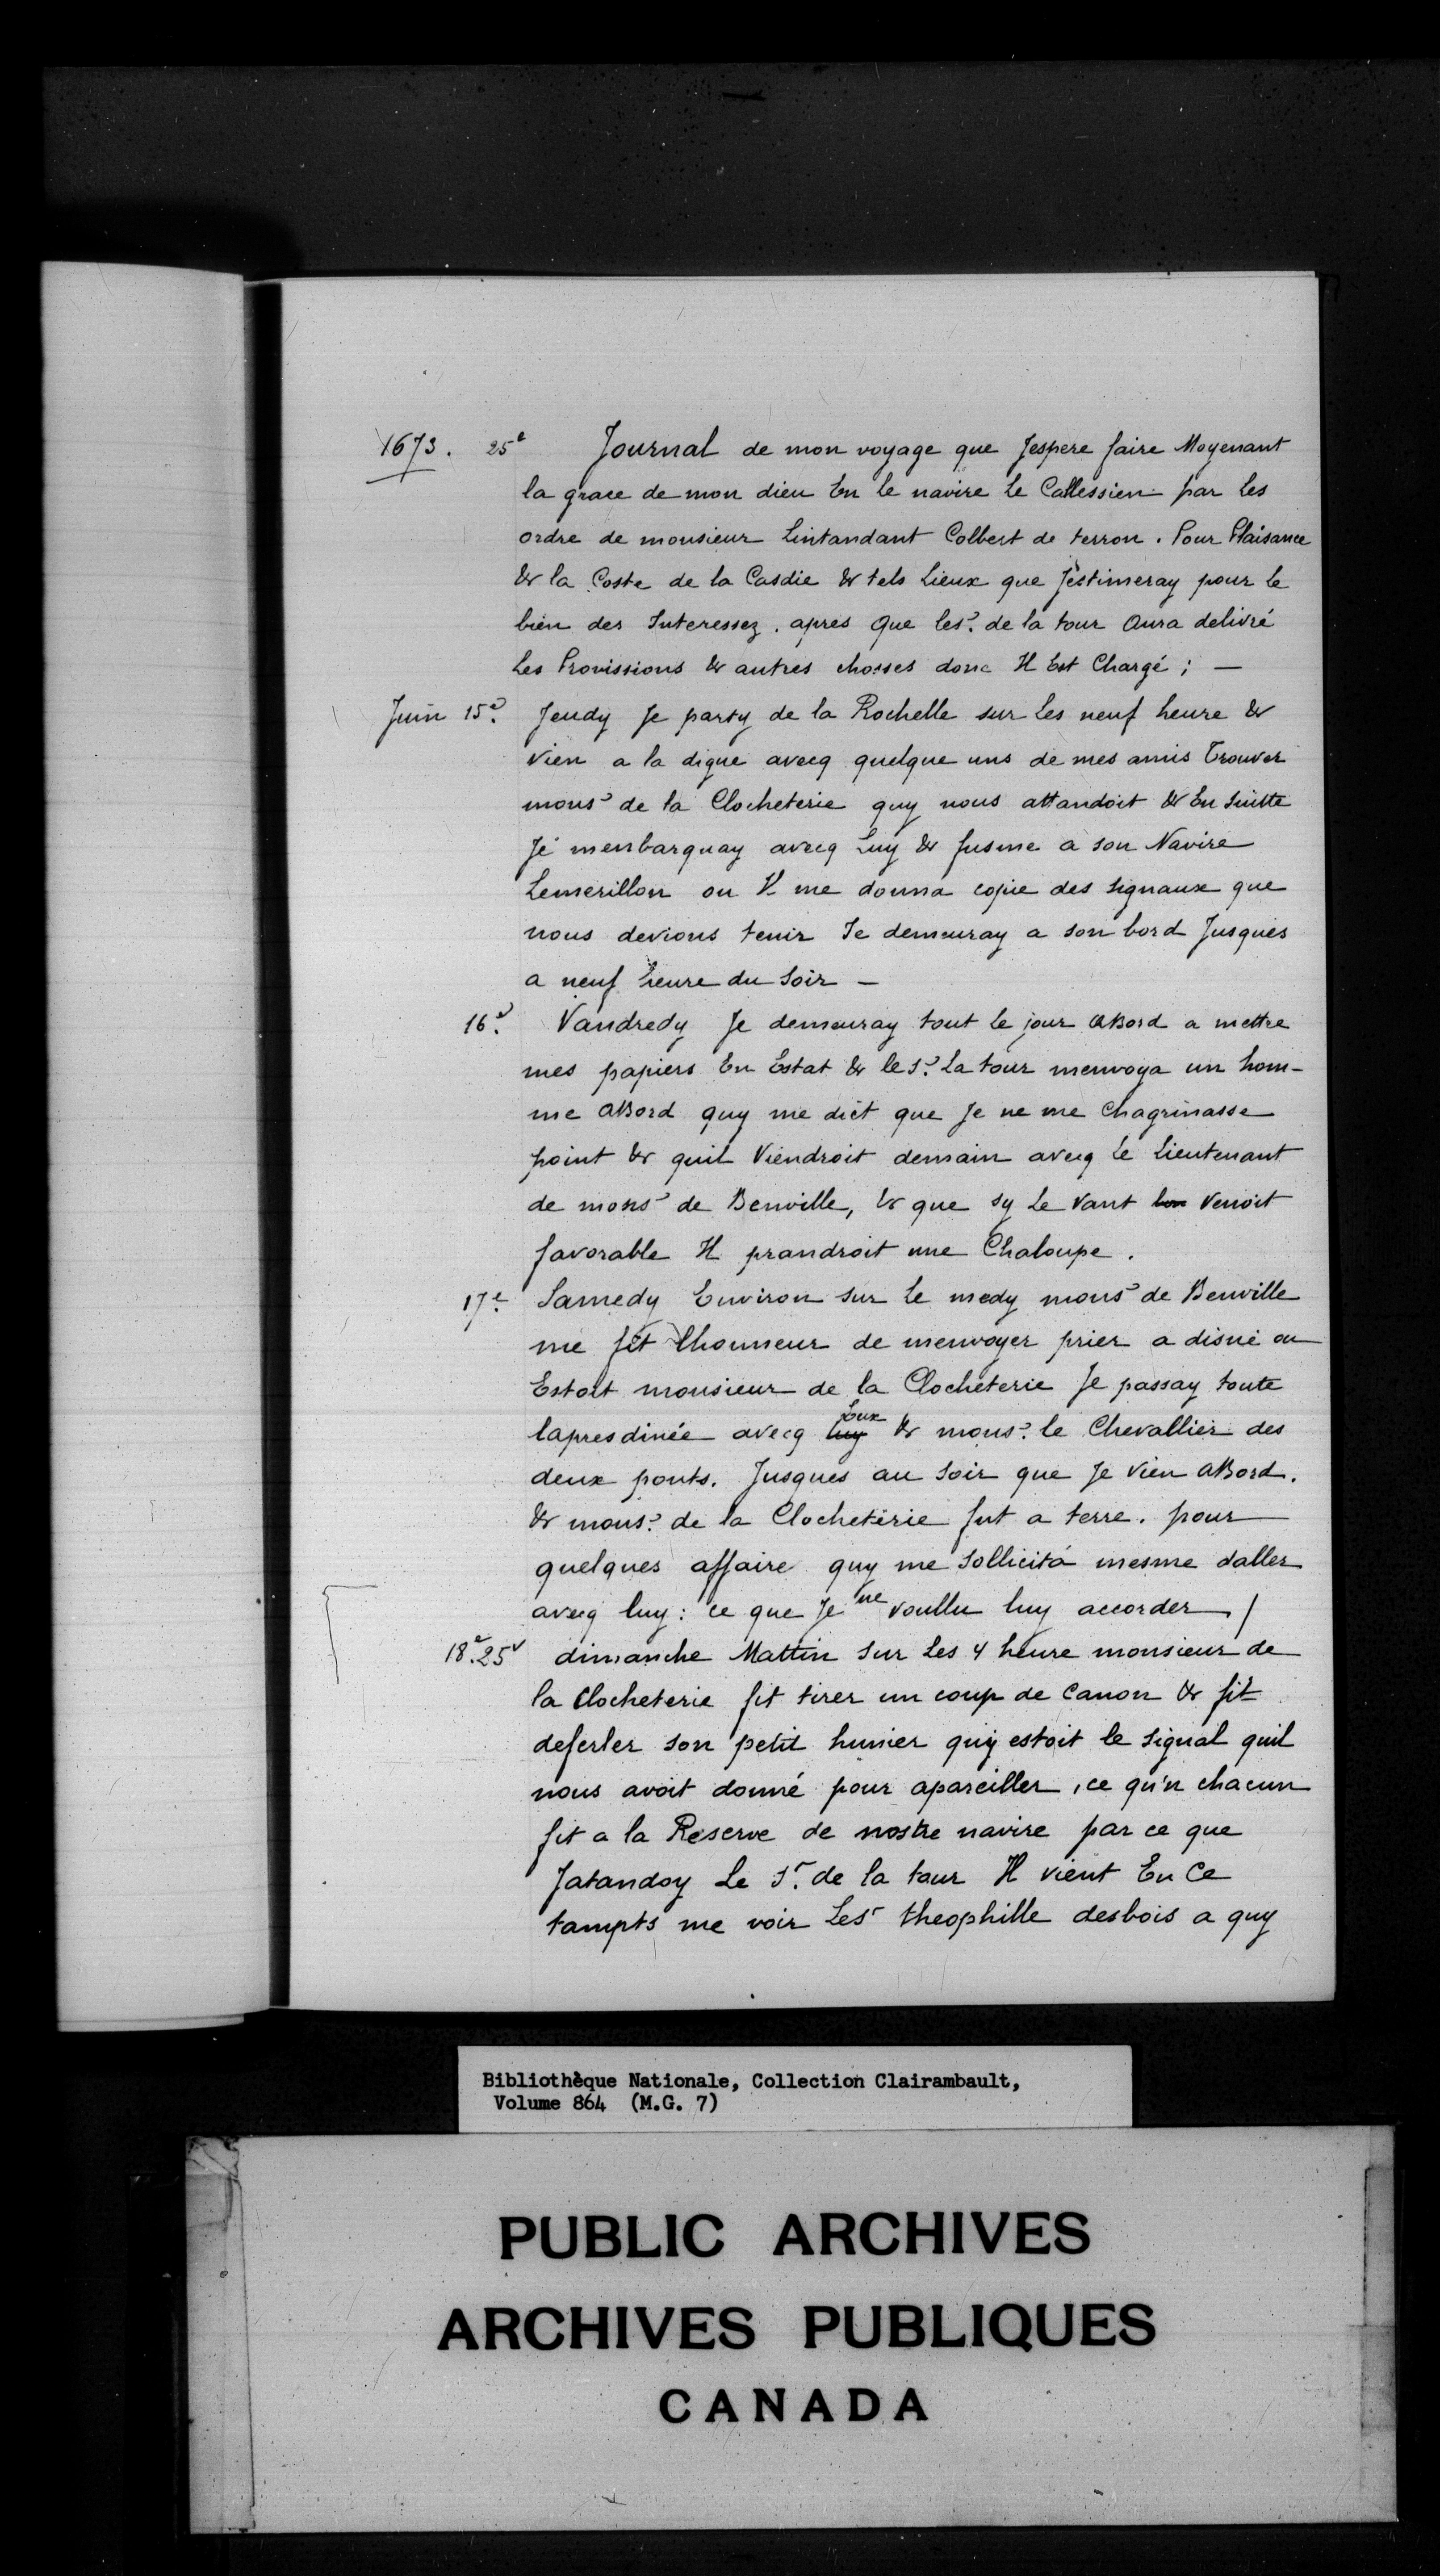 1673. 25e Journal de mon voyage que Jespere faire Moyenant
la grace de mon dieu En le navire Le Callessien par Les
ordre de monsieur Lintandant Colbert de terron. Pour Plaisance
& la Coste de la Casdie & tels Lieux que Jestimeray pour le
bien des Interessez. apres Que les.r de la tour Aura delivré
Les Provissions & autres choses donc Il Est Chargé ; —
Juin 15e. Jeudy Je party de la Rochelle sur Les neuf heure &
vien a la digue avecq quelque uns de mes amis Trouver
monsr de la Clocheterie quy nous attandoit & En Suitte
Je menbarquay avecq Luy & fusme a son Navire
Lemerillon ou Il me donna copie des signaux que
nous devions tenir Je demeuray a son bord Jusques
a neuf heure du Soir —
16e. Vandredy Je demeuray tout Le jour ABord a mettre
mes papiers En Estat & le sr. La tour menvoya un hom-
me ABord quy me dict que Je ne me Chagrinasse
point & quil Viendroit demain avecq Le Lieutenant
de monsr de Benville, & que sy Le vant bon venoit
favorable Il prandroit une Chaloupe.
17e. Samedy Environ sur Le medy monsr de Benville
me fit Lhonneur de menvoyer prier a disné ou
Estoit monsieur de la Clocheterie Je passay toute
lapresdinée avecq luy Eux & monsr. le Chevallier des
deux ponts. Jusques au Soir que Je vien ABord.
& monsr. de la Clocheterie fut a terre. pour
quelques affaire quy me Sollicita mesme daller
avecq luy : ce que Je ne voullu luy accorder /
18e. 25e dimanche Mattin Sur Les 4 heure monsieur de
la Clocheterie fit tirer un coup de Canon & fit
deferler son petit hunier quy estoit le signal quil
nous avoit donné pour apareiller, ce qu'n chacun
fit a la Reserve de nostre navire par ce que
Jatandoy Le Sr. de la tour Il vient En Ce
tampts me voir Lesr theophille desbois a quy
Bibliothèque Nationale, Collection Clairambault,
Volume 864 (M.G. 7)
PUBLIC ARCHIVES
ARCHIVES PUBLIQUES
CANADA